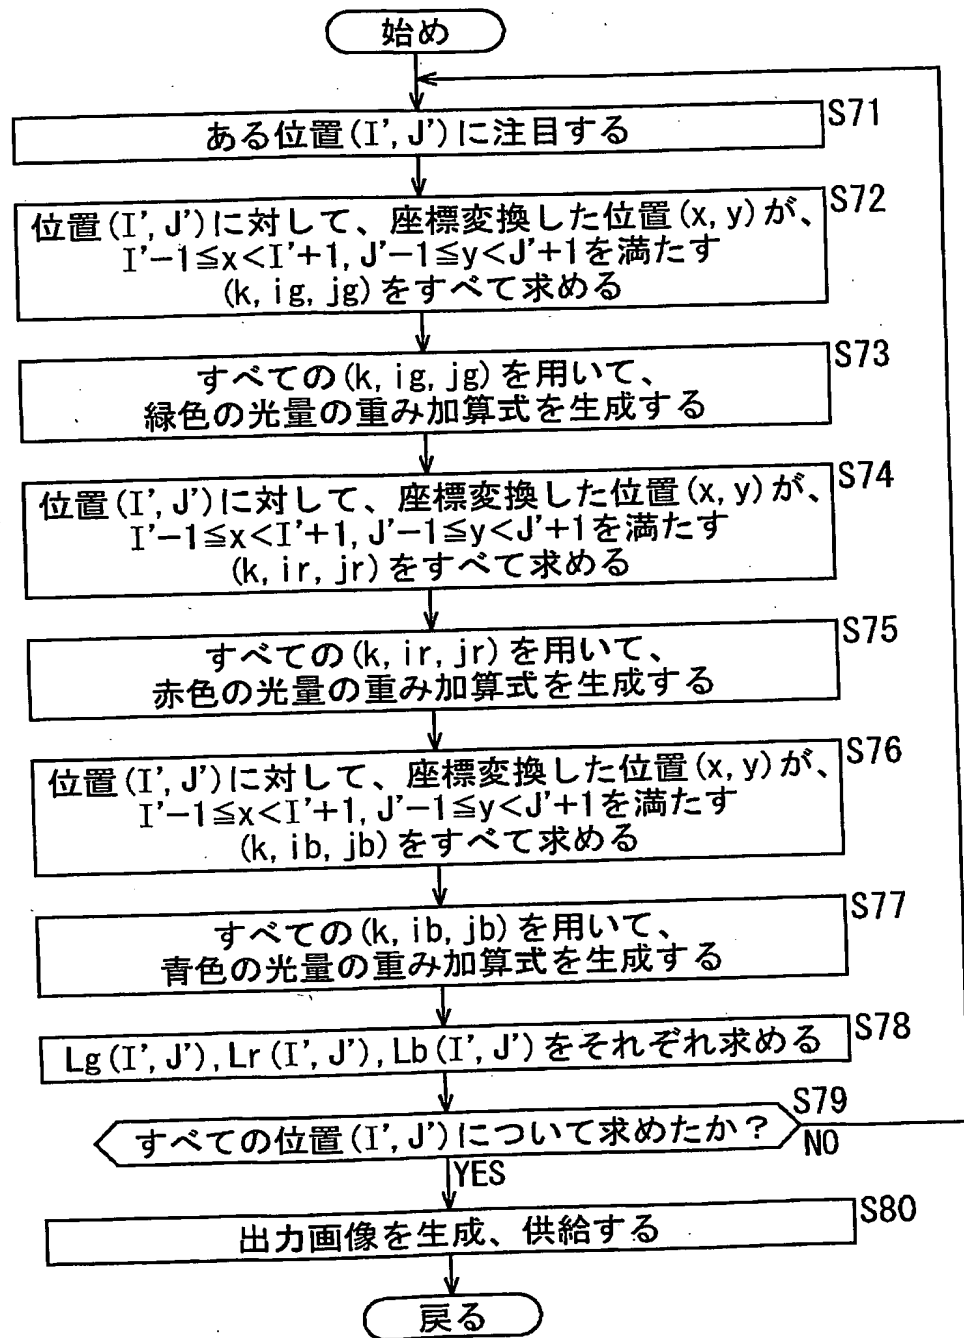 始め
S71
ある位置(I', J')に注目する
S72
位置(I', J')に対して、座標変換した位置(x, y)が、
I'-1≦x<I'+1, J'-1≦y<J'+1を満たす
(k, ig, jg)をすべて求める
S73
すべての(k, ig, jg)を用いて、
緑色の光量の重み加算式を生成する
S74
位置(I', J')に対して、座標変換した位置(x, y)が、
I'-1≦x<I'+1, J'-1≦y<J'+1を満たす
(k, ir, jr)をすべて求める
S75
すべての(k, ir, jr)を用いて、
赤色の光量の重み加算式を生成する
S76
位置(I', J')に対して、座標変換した位置(x, y)が、
I'-1≦x<I'+1, J'-1≦y<J'+1を満たす
(k, ib, jb)をすべて求める
S77
すべての(k, ib, jb)を用いて、
青色の光量の重み加算式を生成する
S78
Lg(I', J'), Lr(I', J'), Lb(I', J')をそれぞれ求める
S79
すべての位置(I', J')について求めたか？
NO
YES
S80
出力画像を生成、供給する
戻る